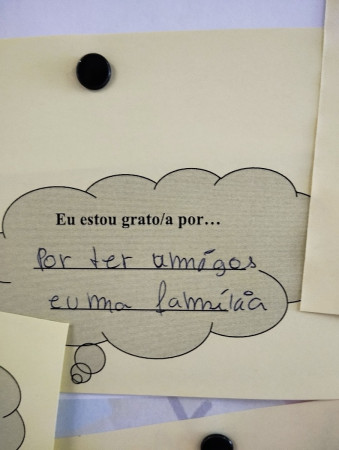 Eu estou grato/a por...
Por ter amigos
e uma família